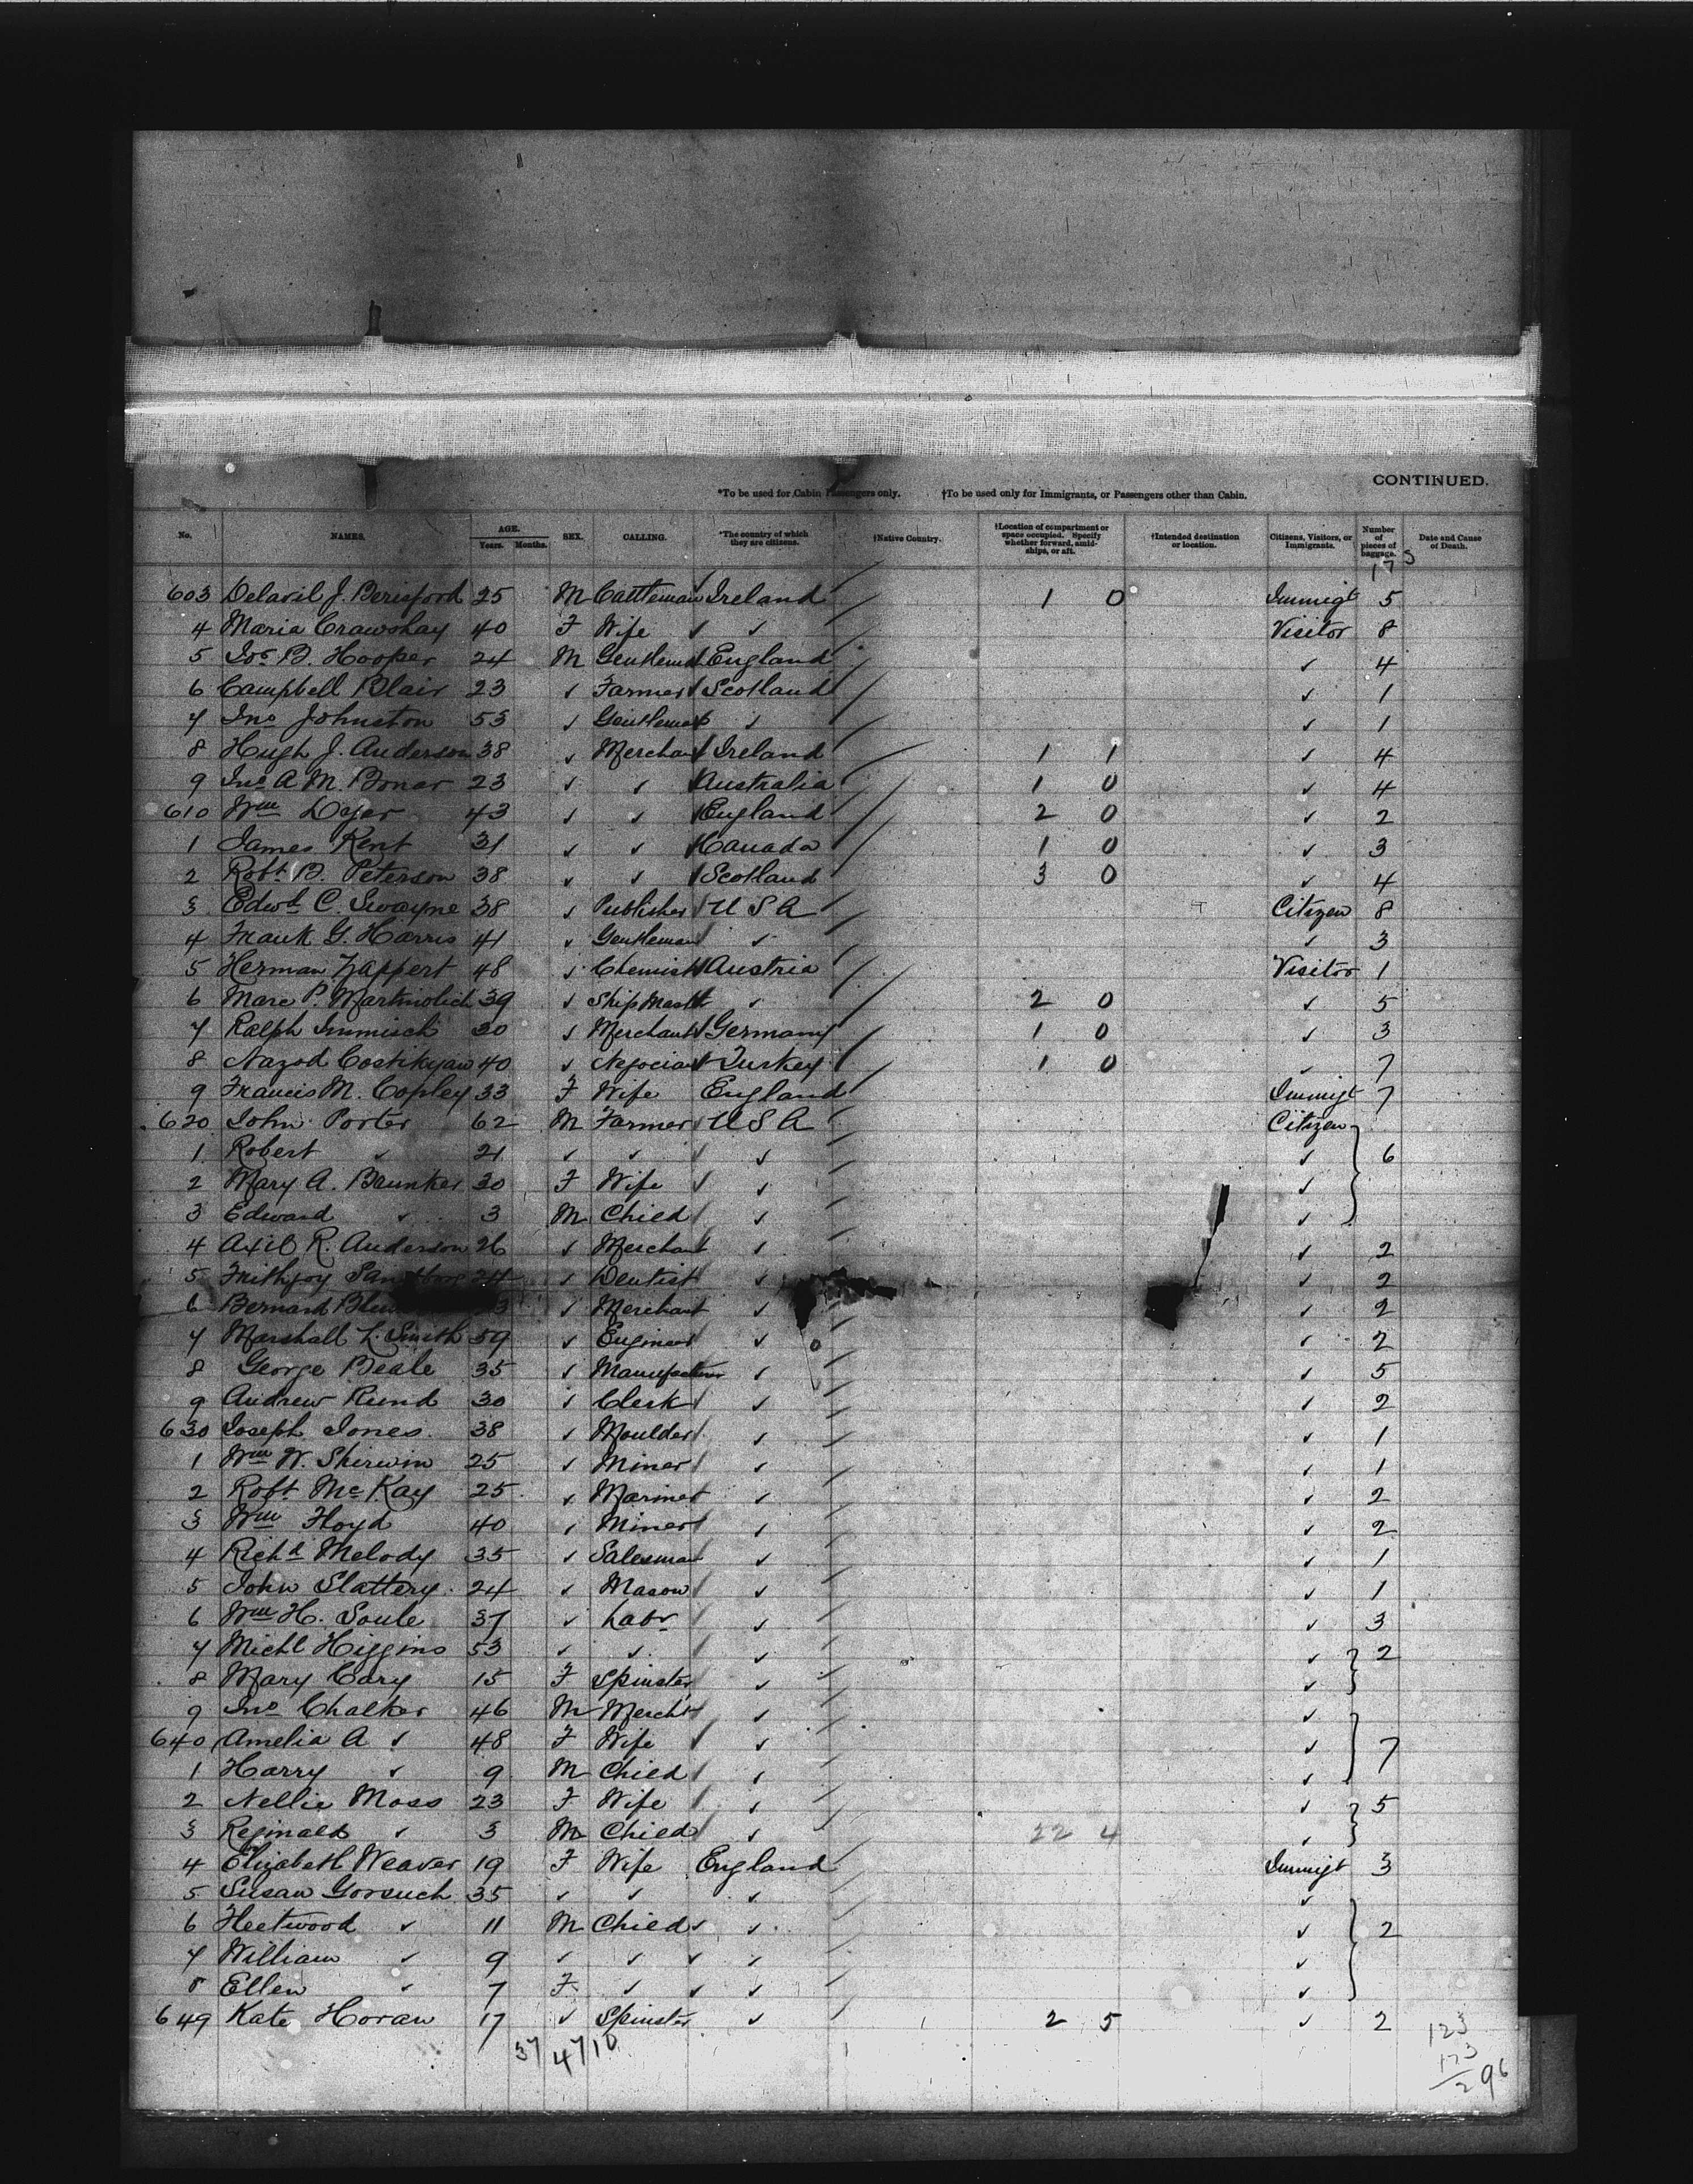 CONTINUED.
*To be used for Cabin Passengers only. †To be used only for Immigrants, or Passengers other than Cabin.
No. NAMES. AGE. Years. Months. SEX. CALLING. *The country of which they are citizens. †Native Country. †Location of compartment or space occupied. Specify whether forward, amidships, or aft. †Intended destination or location. Citizens, Visitors, or Immigrants. Number of pieces of baggage. Date and Cause of Death.
603 Delavil J. Berisford 25 M Cattleman Ireland 1 0 Immigt 5
4 Maria Crawshay 40 F Wife ✓ ✓ Visitor 8
5 Jos B. Hooper 24 M Gentleman England ✓ 4
6 Campbell Blair 23 ✓ Farmer Scotland ✓ 1
7 Jno Johnston 53 ✓ Gentleman ✓ ✓ 1
8 Hugh J. Anderson 38 ✓ Merchant Ireland 1 1 ✓ 4
9 Jno A M. Bonar 23 ✓ ✓ Australia 1 0 ✓ 4
610 Wm Dyer 43 ✓ ✓ England 2 0 ✓ 2
1 James Kent 31 ✓ ✓ Canada 1 0 ✓ 3
2 Robt B. Peterson 38 ✓ ✓ Scotland 3 0 ✓ 4
3 Edwd C. Swayne 38 ✓ Publisher U S A Citizen 8
4 Frank G. Harris 41 ✓ Gentleman ✓ ✓ 3
5 Herman Zappert 48 ✓ Chemist Austria Visitor 1
6 Marc P. Martinolich 39 ✓ Ship Mastr ✓ 2 0 ✓ 5
7 Ralph Immisch 30 ✓ Merchant Germany 1 0 ✓ 3
8 Nazod Costikyan 40 ✓ Negociant Turkey 1 0 ✓ 7
9 Francis M. Copley 33 F Wife England Immigt 7
620 John Porter 62 M Farmer U S A Citizen
1 Robert ✓ 21 ✓ ✓ ✓ ✓ 6
2 Mary A. Baunker 30 F Wife ✓ ✓
3 Edward ✓ 3 M Child ✓ ✓
4 Axil R. Anderson 26 ✓ Merchant ✓ ✓ 2
5 Frithjoy ✓ Dentist ✓ ✓ 2
6 Bernard ✓ Merchant ✓ ✓ 2
7 Marshall L. Smith 59 ✓ Engineer ✓ ✓ 2
8 George Beale 35 ✓ Manufacturer ✓ ✓ 5
9 Andrew Rund 30 ✓ Clerk ✓ ✓ 2
630 Joseph Jones 38 ✓ Moulder ✓ ✓ 1
1 Wm W. Sherwin 25 ✓ Miner ✓ ✓ 1
2 Robt McKay 25 ✓ Mariner ✓ ✓ 2
3 Wm Floyd 40 ✓ Miner ✓ ✓ 2
4 Richd Melody 35 ✓ Salesman ✓ ✓ 1
5 John Slattery 24 ✓ Mason ✓ ✓ 1
6 Wm H. Soule 37 ✓ Labr ✓ ✓ 3
7 Michl Higgins 53 ✓ ✓ ✓ ✓ 2
8 Mary Cary 15 F Spinster ✓ ✓
9 Jno Chalker 46 M Mercht ✓ ✓
640 Amelia A ✓ 48 F Wife ✓ ✓ 7
1 Harry ✓ 9 M Child ✓ ✓
2 Nellie Moss 23 F Wife ✓ ✓ 5
3 Reginald ✓ 3 M Child ✓ 22 4 ✓
4 Elizabeth Weaver 19 F Wife England Immigt 3
5 Susan Gorsuch 35 ✓ ✓ ✓ ✓
6 Fleetwood ✓ 11 M Child ✓ ✓ ✓ 2
7 William ✓ 9 ✓ ✓ ✓ ✓ ✓
8 Ellen ✓ 7 F ✓ ✓ ✓ ✓
649 Kate Horan 17 ✓ Spinster ✓ 2 5 ✓ 2
37 47 10
123
173
296